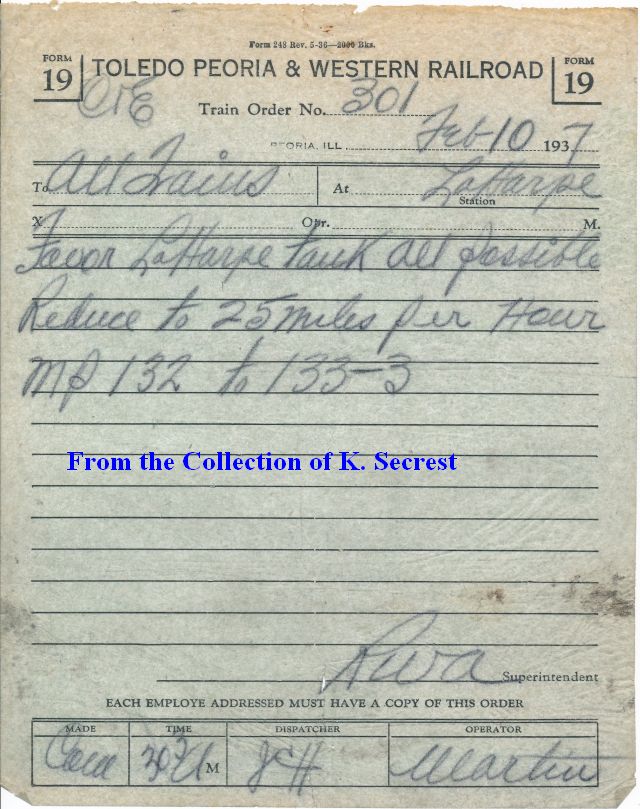 Form 248 Rev. 5-36—2000 Bks.
FORM 19 TOLEDO PEORIA & WESTERN RAILROAD FORM 19
Train Order No. 301
PEORIA, ILL Feb-10 1937
To All Trains At LaHarpe
Station
X Opr. M.
Favor LaHarpe tank all possible
Reduce to 25 miles per Hour
MP 132 to 133-3
From the Collection of K. Secrest
RWA Superintendent
EACH EMPLOYE ADDRESSED MUST HAVE A COPY OF THIS ORDER
MADE TIME DISPATCHER OPERATOR
Com M JCH Martin